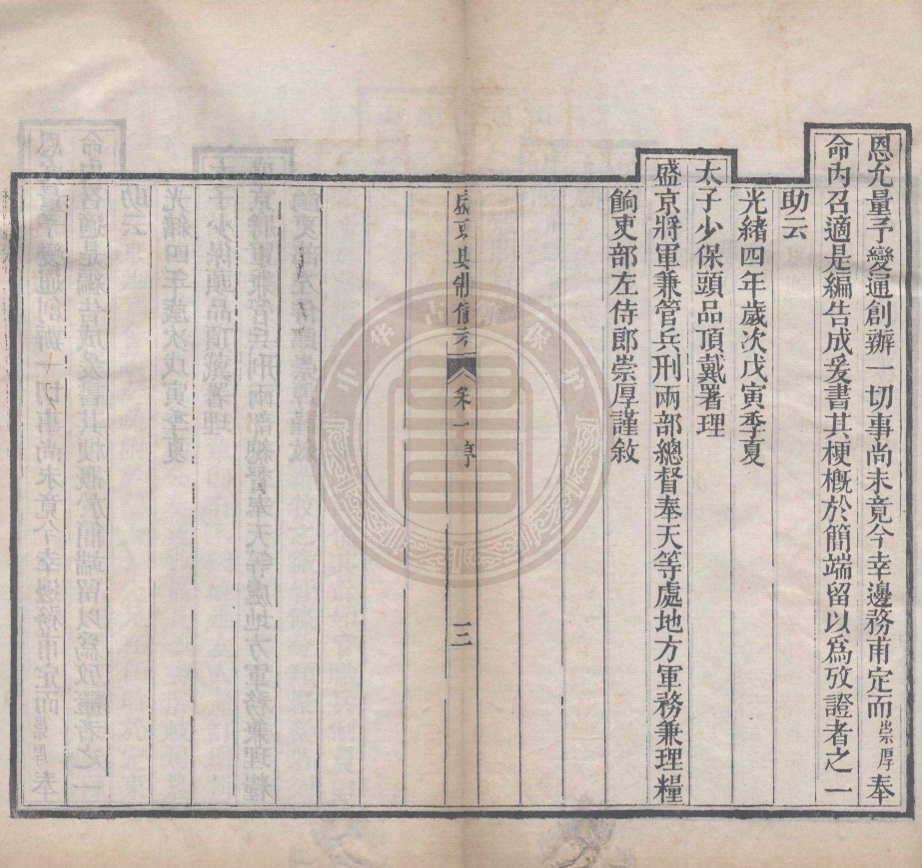 恩允量予變通創辦一切事尚未竟今幸邊務甫定而崇厚奉
命內召適是編告成爰書其梗概於簡端留以爲攷證者之一
助云
光緒四年歲次戊寅季夏
太子少保頭品頂戴署理
盛京將軍兼管兵刑兩部總督奉天等處地方軍務兼理糧
餉吏部左侍郎崇厚謹敘
盛京典制備考
卷一序
三